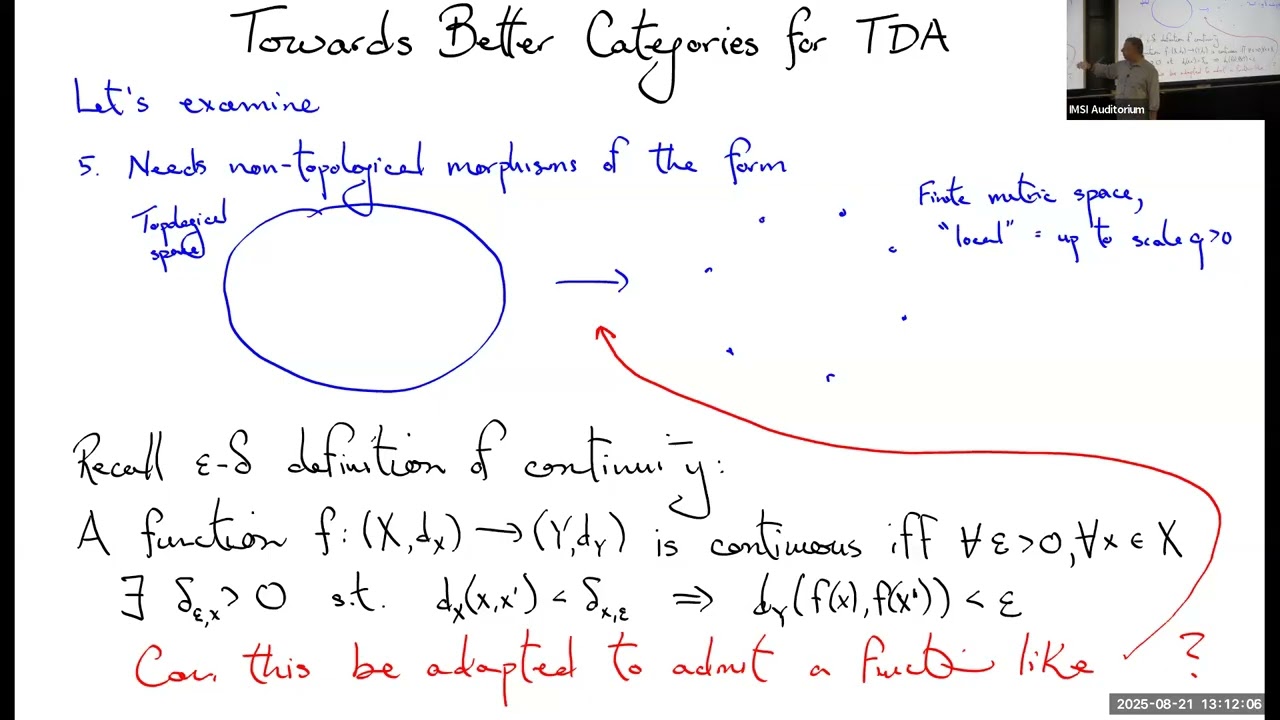 Towards Better Categories for TDA
Let's examine
5. Needs non-topological morphisms of the form
Topological
space
Finite metric space,
"local" = up to scale q>0
Recall ε-δ definition of continuity:
A function f:(X,dₓ)→(Y,d_Y) is continuous iff ∀ε>0,∀x∈X
∃ δ_{ε,x}>0 s.t. dₓ(x,x')<δ_{x,ε} ⇒ d_Y(f(x),f(x'))<ε
Can this be adapted to admit a function like ?
IMSI Auditorium
2025-08-21 13:12:06